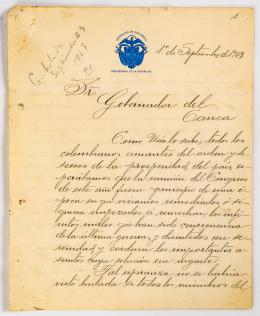 1
Contestada
Septiembre 23
1903
REPÚBLICA DE COLOMBIA
PRESIDENCIA DE LA REPÚBLICA
1º de Septiembre de 1903
Sr.
Gobernador del
Cauca
Como Usía lo sabe, todos los
colombianos amantes del orden y de-
seosos de la prosperidad del país es-
perábamos que la reunión del Congreso
de este año fuera principio de una é-
poca en que viéramos remediados, ó si-
quiera empezados á remediar, los infi-
nitos males que han sido consecuencia
de la última guerra, y discutidos con se-
renidad y cordura los importantes a-
suntos cuya solución era urgente.
Tal esperanza no se habría
visto burlada si todos los miembros del